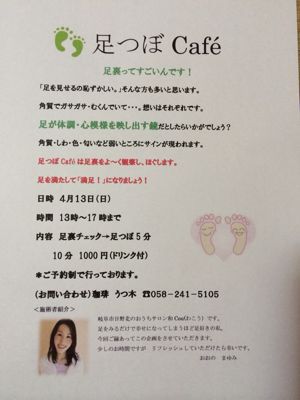 足つぼ Café
足裏ってすごいんです！
「足を見せるの恥ずかしい。」そんな方も多いと思います。
角質でガサガサ・むくんでいて・・・。想いはそれぞれです。
足が体調・心模様を映し出す鏡だとしたらいかがでしょう？
角質・しわ・色・匂いなど弱いところにサインが現われます。
足つぼ Café は足裏をよ～く観察し、ほぐします。
足を満たして「満足！」になりましょう！
日時 4月13日(日)
時間 13時～17時まで
内容 足裏チェック→足つぼ5分
10分 1000円(ドリンク付)
＊ご予約制で行っております。
(お問い合わせ)珈琲 うつ木 ☎058-241-5105
＜施術者紹介＞
岐阜市日野北のおうちサロン和Coo(わこう）です。
足をみるだけで幸せになってしまうほど足好きの私。
今回ご縁あってこの企画をさせていただきます。
少しのお時間ですが リフレッシュしていただけたら幸いです。
おおの まゆみ